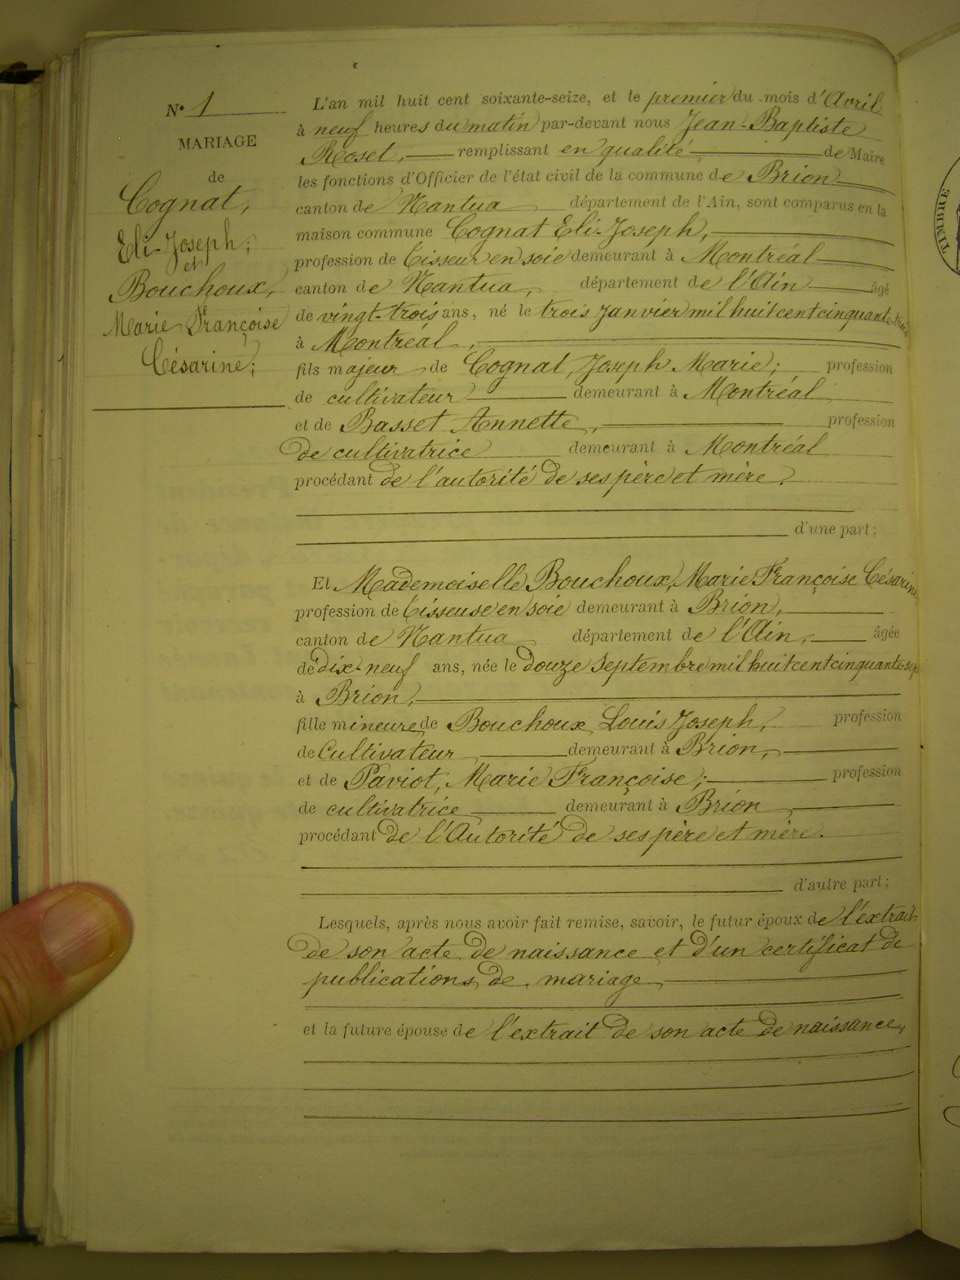 N° 1
MARIAGE
de
Cognat,
Eli-Joseph;
et
Bouchoux,
Marie Françoise
Césarine;
L'an mil huit cent soixante-seize, et le premier du mois d'Avril
à neuf heures du matin par-devant nous Jean-Baptiste
Roset, remplissant en qualité de Maire
les fonctions d'Officier de l'état civil de la commune de Brion
canton de Nantua département de l'Ain, sont comparus en la
maison commune Cognat Eli-Joseph,
profession de Tisseur en soie demeurant à Montréal
canton de Nantua, département de l'Ain âgé
de vingt-trois ans, né le trois janvier mil huit cent cinquante
à Montréal,
fils majeur de Cognat, Joseph Marie; profession
de cultivateur demeurant à Montréal
et de Basset Annette, profession
de cultivatrice demeurant à Montréal
procédant de l'autorité de ses père et mère.
d'une part;
Et Mademoiselle Bouchoux, Marie Françoise Césarine
profession de Tisseuse en soie demeurant à Brion,
canton de Nantua département de l'Ain, âgée
de dix-neuf ans, née le douze septembre mil huit cent cinquante-sept
à Brion,
fille mineure de Bouchoux, Louis Joseph, profession
de Cultivateur demeurant à Brion,
et de Paviot, Marie Françoise; profession
de cultivatrice demeurant à Brion
procédant de l'Autorité de ses père et mère.
d'autre part;
Lesquels, après nous avoir fait remise, savoir, le futur époux de l'extrait
de son acte de naissance et d'un certificat de
publications de mariage
et la future épouse de l'extrait de son acte de naissance,
TIMBRE